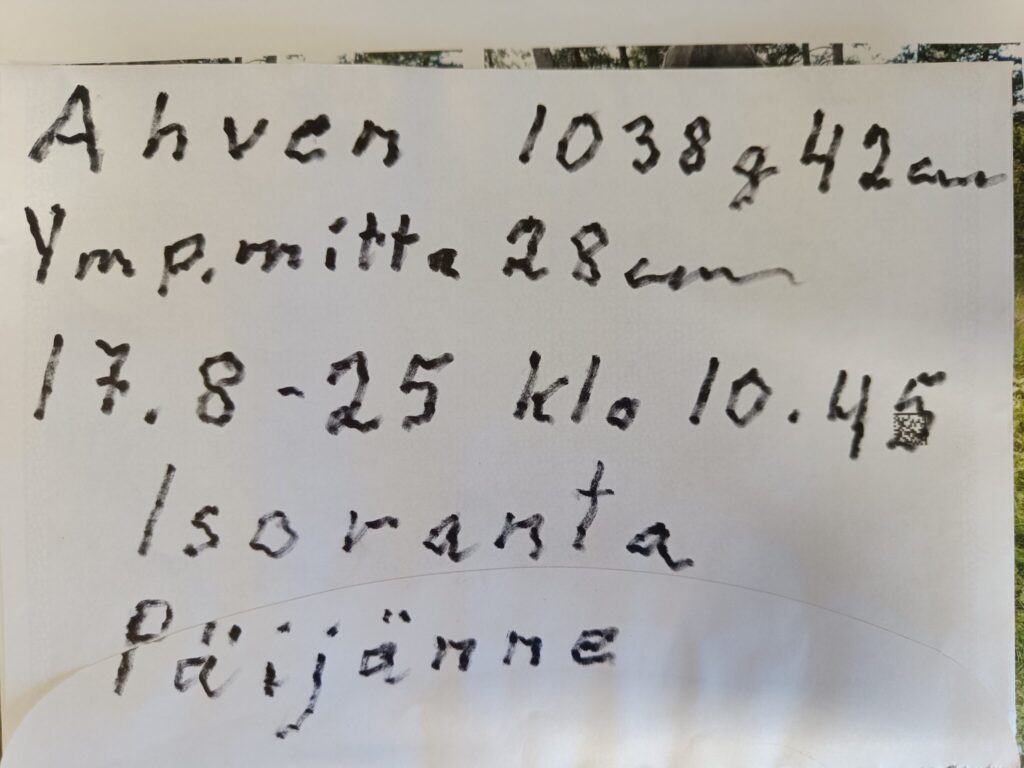 Ahven 1038g 42cm
Ymp.mitta 28cm
17.8-25 klo 10.45
Isoranta
Päijänne